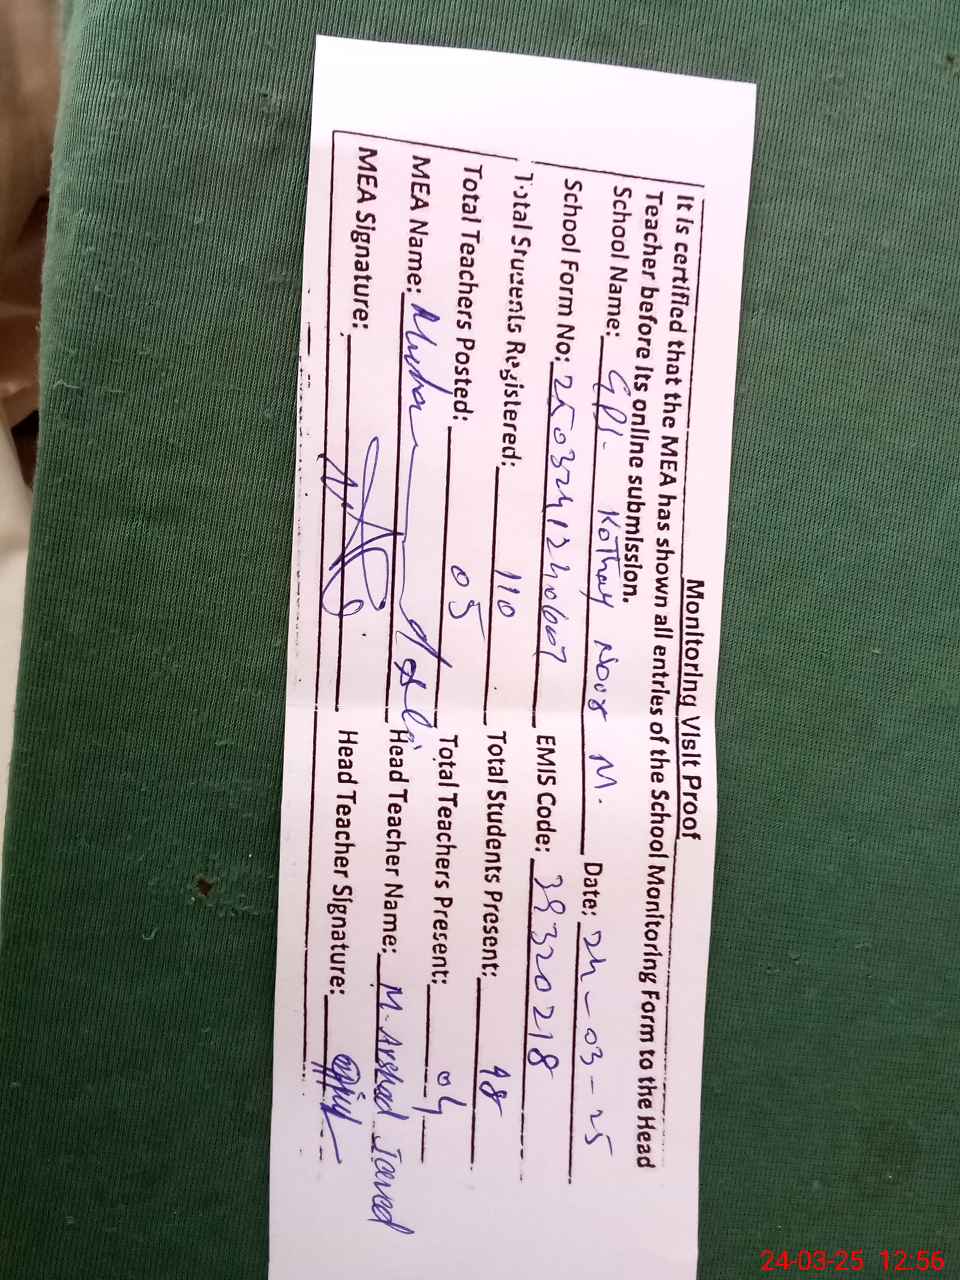 Monitoring Visit Proof
It is certified that the MEA has shown all entries of the School Monitoring Form to the Head
Teacher before its online submission.
School Name: GPS. Kothay Noor M. Date: 24-03-25
School Form No: EMIS Code: 39320218
Total Students Registered: 110 Total Students Present: 98
Total Teachers Posted: 05 Total Teachers Present: 04
MEA Name: Ali Head Teacher Name: M. Arshad Javed
MEA Signature: Head Teacher Signature:
24-03-25 12:56